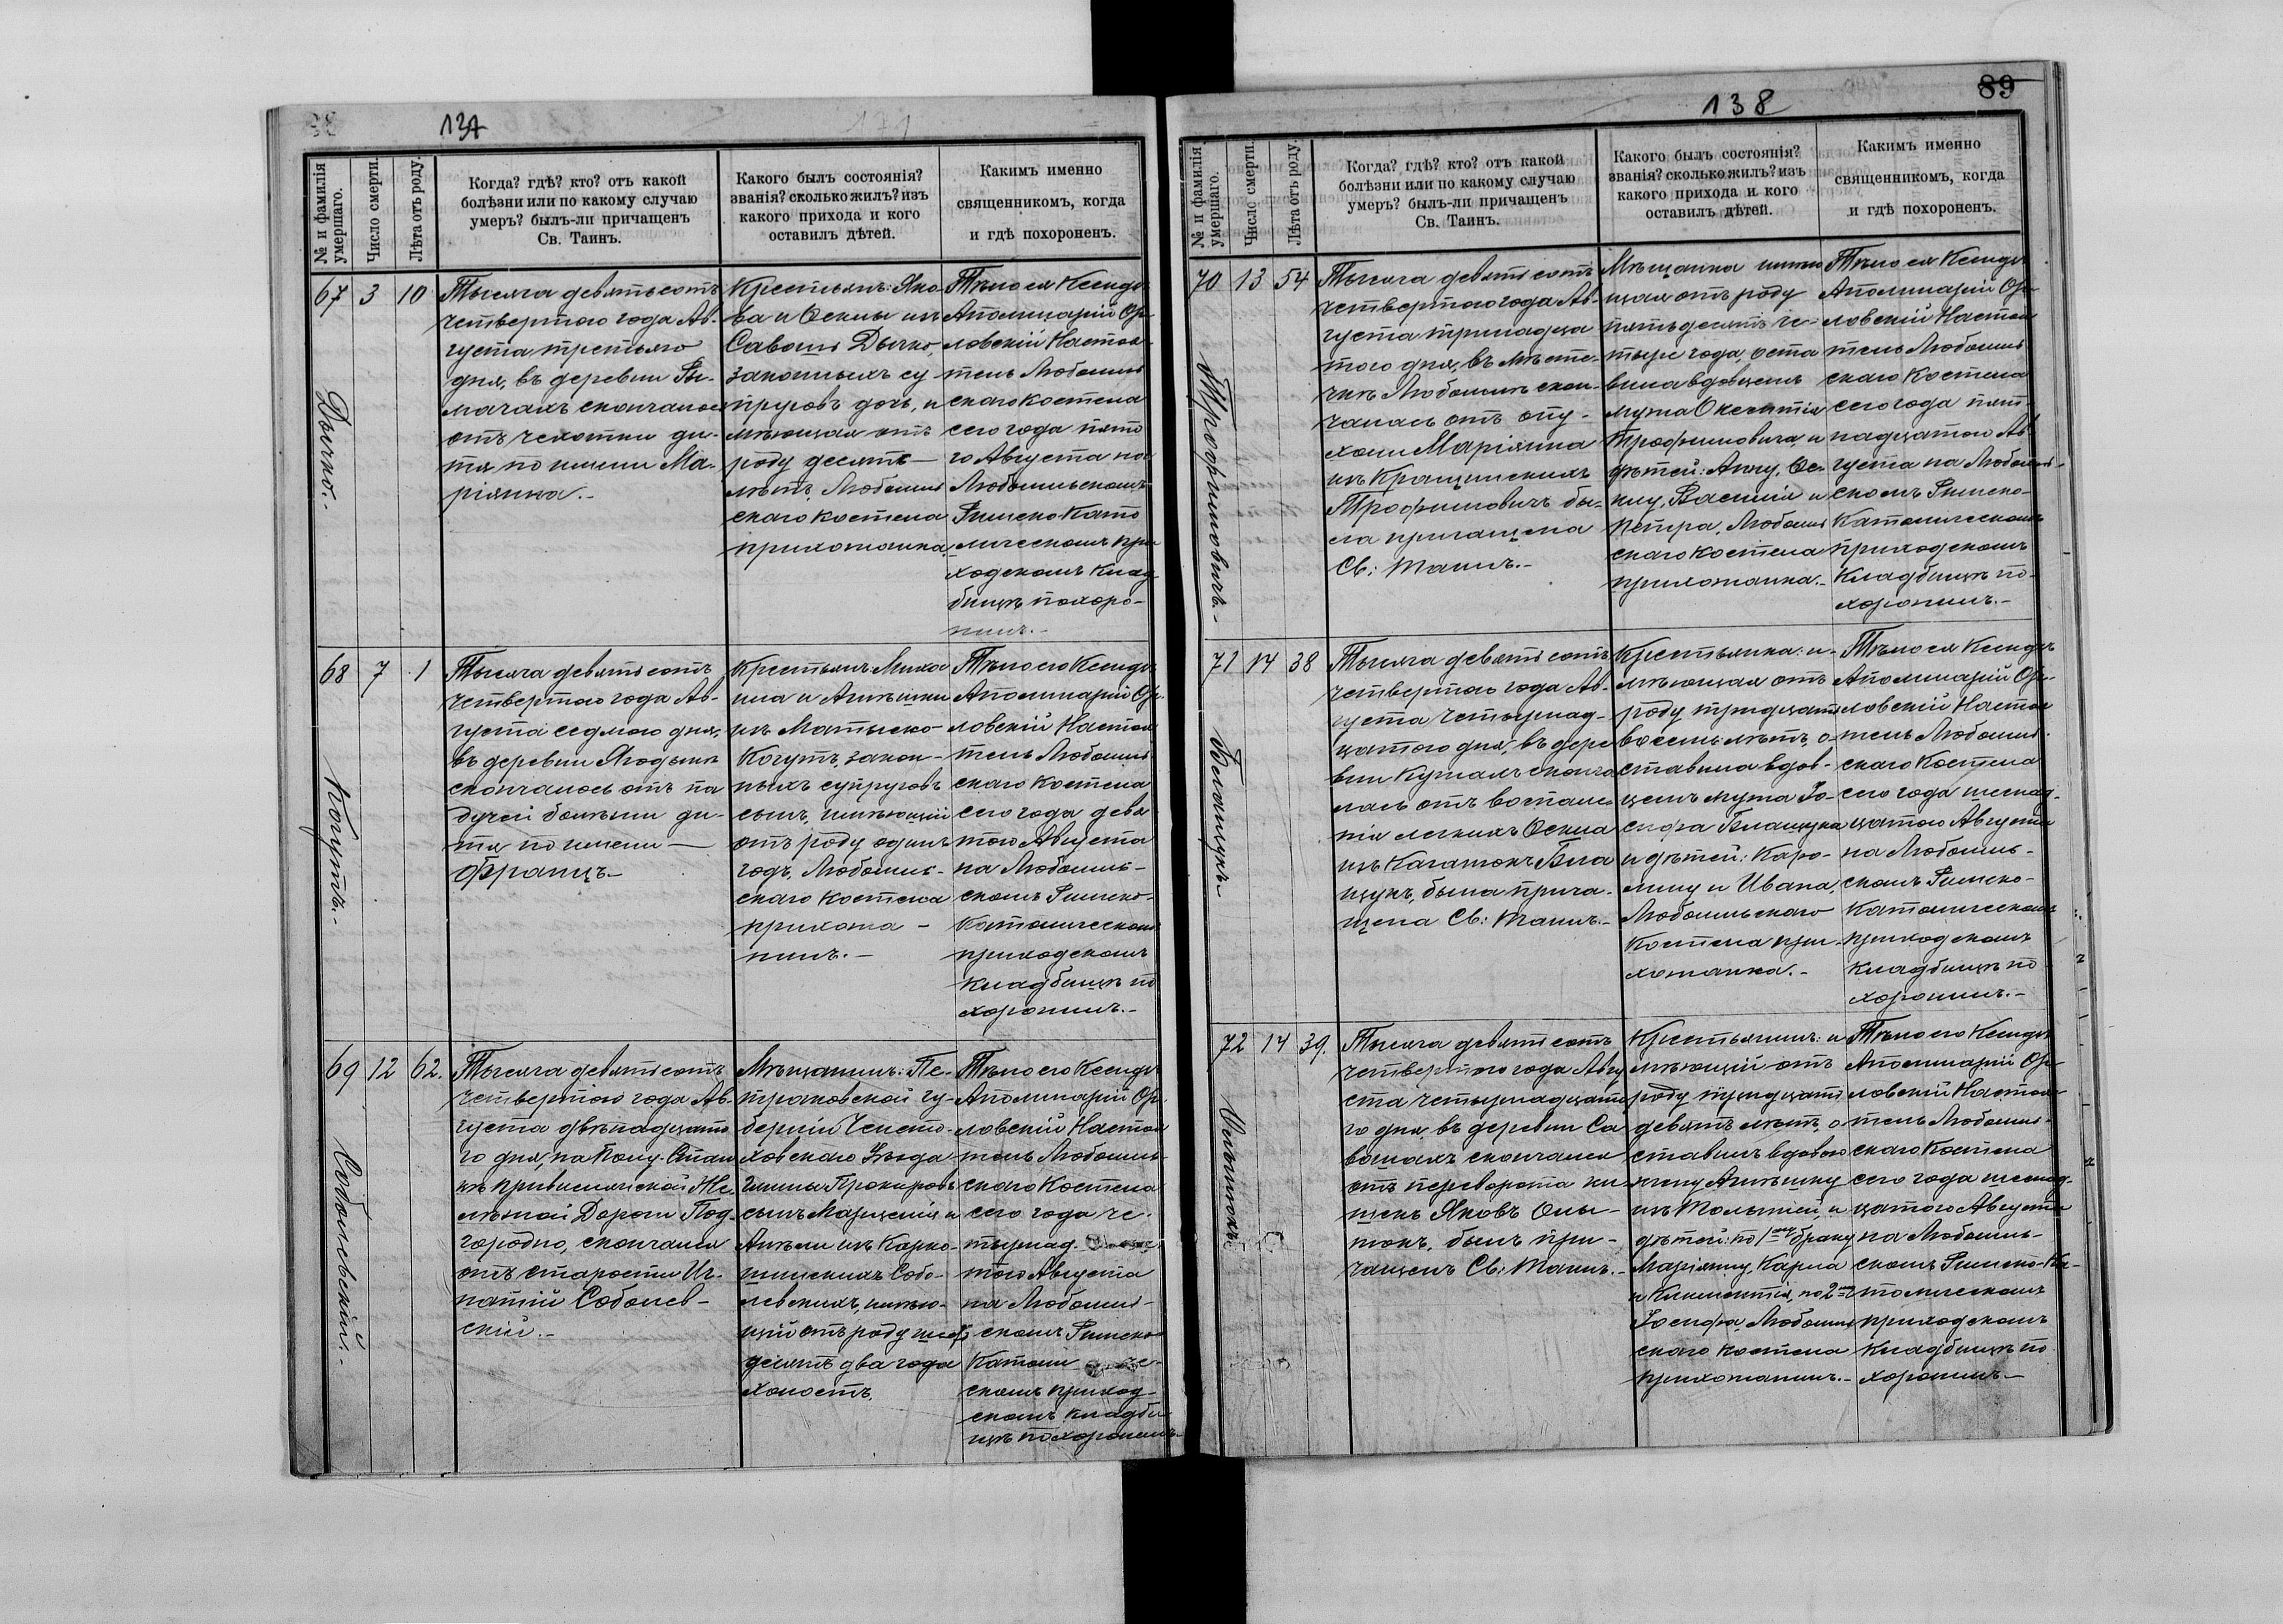 137
№ и фамилія
умершаго.
Число смерти.
Лѣта отъ роду.
Когда? гдѣ? кто? отъ какой
болѣзни или по какому случаю
умеръ? былъ-ли причащенъ
Св. Таинъ.
Какого былъ состоянія?
званія? сколько жилъ? изъ
какого прихода и кого
оставилъ дѣтей.
Какимъ именно
священникомъ, когда
и гдѣ похороненъ.
67
Дычко.-
3
10
Тысяча девятьсотъ
четвертого года Ав-
густа третьяго
дня, въ деревни Ри-
мачахъ скончалось
отъ чехотки ди-
тя по имени Ма-
ріянна.-
Крестьянъ: Яко-
ва и Оскны изъ
Савошъ Дычко,
законныхъ су-
пруговъ дочь, и
мѣющая отъ
роду десять
лѣтъ, Любомль
скаго костела
прихожанка.
Тѣло ея Ксендзъ
Аполинарій Ор-
ловскій Настоя-
тель Любомль
скаго костела
сего года пято
го Августа на
Любомльскомъ
Римско Като
лическомъ при
ходскомъ Клад
бищѣ похоро-
нилъ.-
68
Когутъ.-
7
1
Тысяча девятьсотъ
четвертого года Ав-
густа седмого дня,
въ деревни Ягодынѣ
скончалось отъ па
дучей болѣзни ди-
тя по имени
Францъ.-
Крестьянъ: Миха
ила и Агнѣшки
изъ Матыско-
Когутъ, закон-
ныхъ супруговъ
сынъ, имѣющій
отъ роду одинъ
годъ, Любомль-
скаго костела
прихожа-
нинъ.-
Тѣло его Ксендзъ
Аполинарій Ор-
ловскій Настоя
тель Любомль
скаго костела
сего года девя
того Августа
на Любомль-
скомъ Римско-
Католическомъ
приходскомъ
кладбищѣ по
хоронилъ.-
69
Соболевскій.-
12
62.
Тысяча девятьсотъ
четвертого года Ав-
густа двѣнадцато
го дня, на Кону. Стан
къ Привислянской Же-
лѣзной Дороги Под-
городно, скончался
отъ старости Иг-
натій Соболев-
скій.-
Мѣщанинъ: Пе-
троковской гу-
берніи Ченсто-
ховскаго Уѣзда
Гмины Прокоровъ
сынъ Марцелія и
Анѣли изъ Карко-
шинскихъ Собо-
левскихъ, имѣю-
щій отъ роду шест
десять два года
холостъ.
Тѣло его Ксендзъ
Аполинарій Ор-
ловскій Настоя
тель Любомль-
скаго костела
сего года че-
тырнад
того Августа
на Любомль-
скомъ Римско
Католи че-
скомъ приход-
скомъ кладби
щѣ похоронилъ.-
138
89
№ и фамилія
умершаго.
Число смерти.
Лѣта отъ роду.
Когда? гдѣ? кто? отъ какой
болѣзни или по какому случаю
умеръ? былъ-ли причащенъ
Св. Таинъ.
Какого былъ состоянія?
званія? сколько жилъ? изъ
какого прихода и кого
оставилъ дѣтей.
Какимъ именно
священникомъ, когда
и гдѣ похороненъ.
70
Трофимовичъ.-
13
54
Тысяча девятьсотъ
четвертого года Ав-
густа тринадца
того дня, въ мѣсте-
чкѣ Любомлѣ скон-
чалась отъ опу-
холи Маріянна
изъ Кращинскихъ
Трофимовичъ бы-
ла причащена
Св: Таинъ.-
Мѣщанка имѣю
щая отъ роду
пятьдесятъ че-
тыре года, оста
вила вдовцемъ
мужа Окентія
Трофимовича, и
дѣтей: Анну, Ос-
кну, Василія и
Петра, Любомль
скаго костела
прихожанка.-
Тѣло ея Ксендзъ
Аполинарій Ор-
ловскій Настоя
тель Любомль
скаго Костела
сего года пят-
надцатого Ав
густа на Любомль-
скомъ Римско-
Католическомъ
приходскомъ
кладбищѣ по-
хоронилъ.-
71
Белащукъ
14
38
Тысяча девятьсотъ
четвертого года Ав-
густа четырнад-
цатого дня, въ дере
вни Кутахъ сконча
лась отъ воспале-
нія легкихъ Оскна
изъ Качатокъ Бла
щукъ, была прича-
щена Св: Таинъ.-
Крестьянка: и-
мѣющая отъ
роду тридцать
восемь лѣтъ, о-
ставила вдов-
цемъ мужа Іо-
сифа Блащука
и дѣтей: Каро-
лину и Ивана,
Любомльскаго
Костела при-
хожанка.-
Тѣло ея Ксендзъ
Аполинарій Ор-
ловскій Настоя
тель Любомль
скаго Костела
сего года шестнад-
цатого Августа
на Любомль-
скомъ Римско-
Католическомъ
приходскомъ
кладбищѣ по
хоронилъ.-
72
14
39.
Тысяча девятьсотъ
четвертого года Авгу
ста четырнадцато
го дня, въ деревни Са
вошахъ скончался
отъ переворота ки
шекъ Яковъ Оны-
тюкъ, былъ при-
чащенъ Св: Таинъ.-
Крестьянинъ: и
мѣющій отъ
роду тридцать
девять лѣтъ, о
ставилъ вдовою
жену Агнѣшку
изъ Тольпей, и
дѣтей: по 1му браку
Маріянну, Карла
и Климентія, по 2му
Іосифа, Любомль
скаго костела
прихожанинъ.-
Тѣло его Ксендзъ
Аполинарій Ор-
ловскій Настоя-
тель Любомль-
скаго Костела
сего года шестнад-
цатого Августа
на Любомль-
скомъ Римско-Ка-
толическомъ
приходскомъ
кладбищѣ по
хоронилъ.-